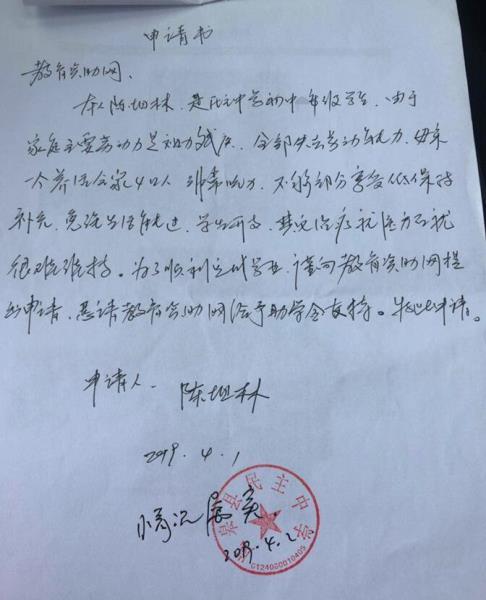 申请书
教育资助网、
本人陈坦林，是民主中学初中年级学生，由于
家庭主要劳动力是视力残疾，全部失去劳动能力，母亲
一个养活全家4口人 非常吃力，不够部分享受低保待
补充，勉强生活能过，学生开支，
很难维持。为了顺利完成学业，谨向教育资助网提
出申请，恳请教育资助网给予助学金支持。特此申请。
申请人：陈坦林
2019.4.1
情况属实。
县民主中学
2019.4.2